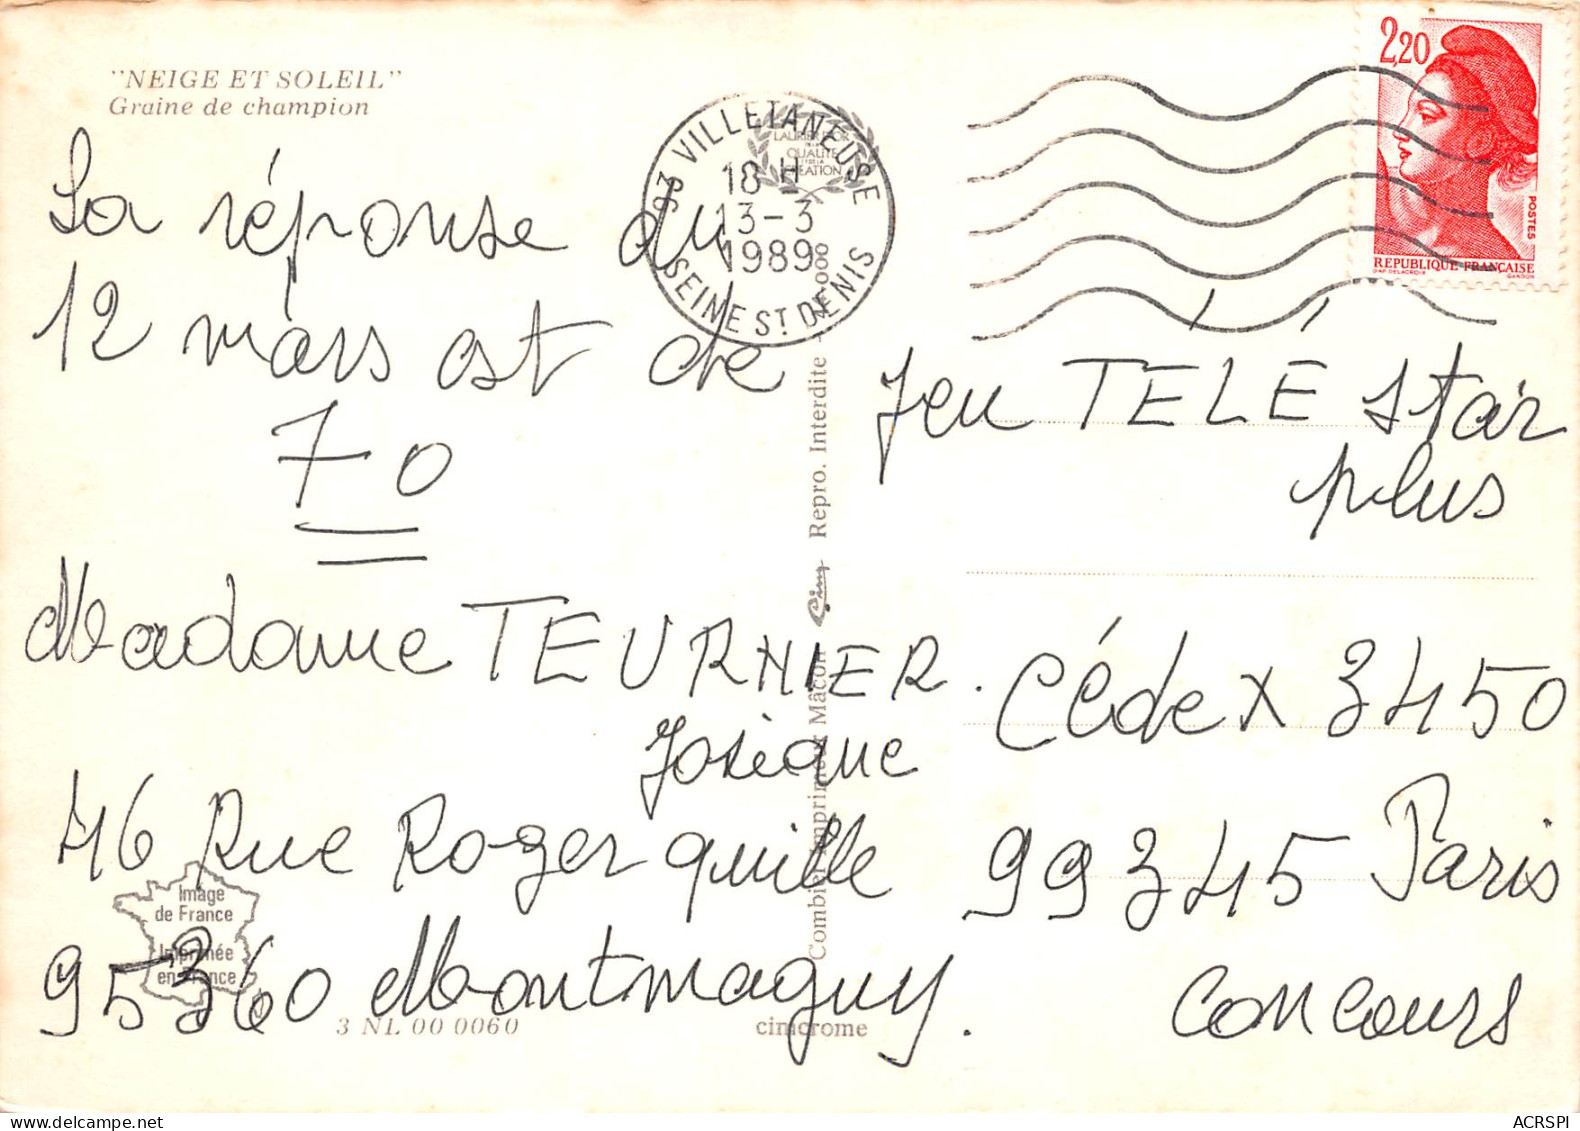 "NEIGE ET SOLEIL"
Graine de champion
La réponse du
12 mars est de
70
Madame TEURNIER.
Josique
46 Rue Roger quille
95360 Montmaguy.
Image
de France
Imprimée
en France
3 NL 00 0060
cimcrome
Combier Imprimeur Mâcon
Cim
Repro. Interdite
LAURIER D'OR
DE LA
QUALITÉ
ET DE LA
CREATION
93 VILLETANEUSE
18 H
13-3
1989
SEINE ST DENIS
2,20
POSTES
REPUBLIQUE FRANÇAISE
D'AP. DELACROIX
GANDON
Jeu TÉLÉ Star
plus
Cédex 3450
99345 Paris
Concours
ACRSPI